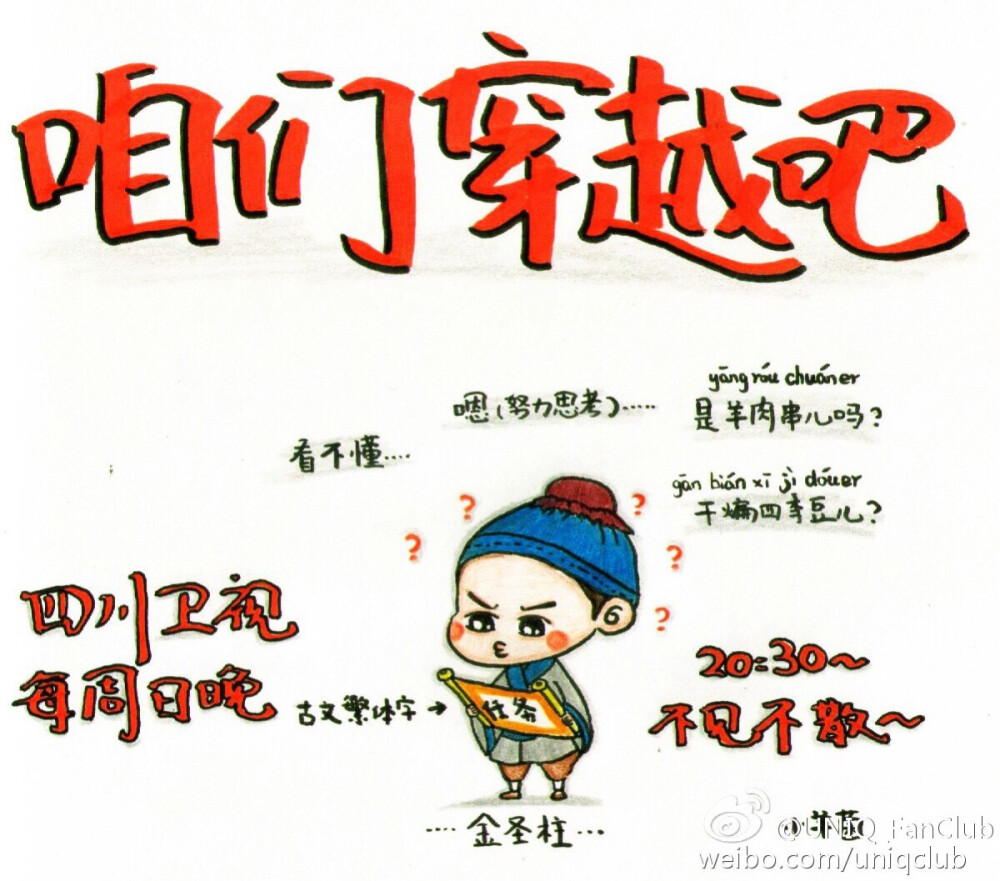 咱们穿越吧
yāng róu chuáner
嗯（努力思考）……
是羊肉串儿吗？
看不懂....
gān bián xī jì dóuer
干煸四季豆儿？
? ? ? ? ?
四川卫视
每周日晚
20:30~
不见不散~
古文繁体字→
任务
....金圣柱...
@UNIQ_FanClub
weibo.com/uniqclub